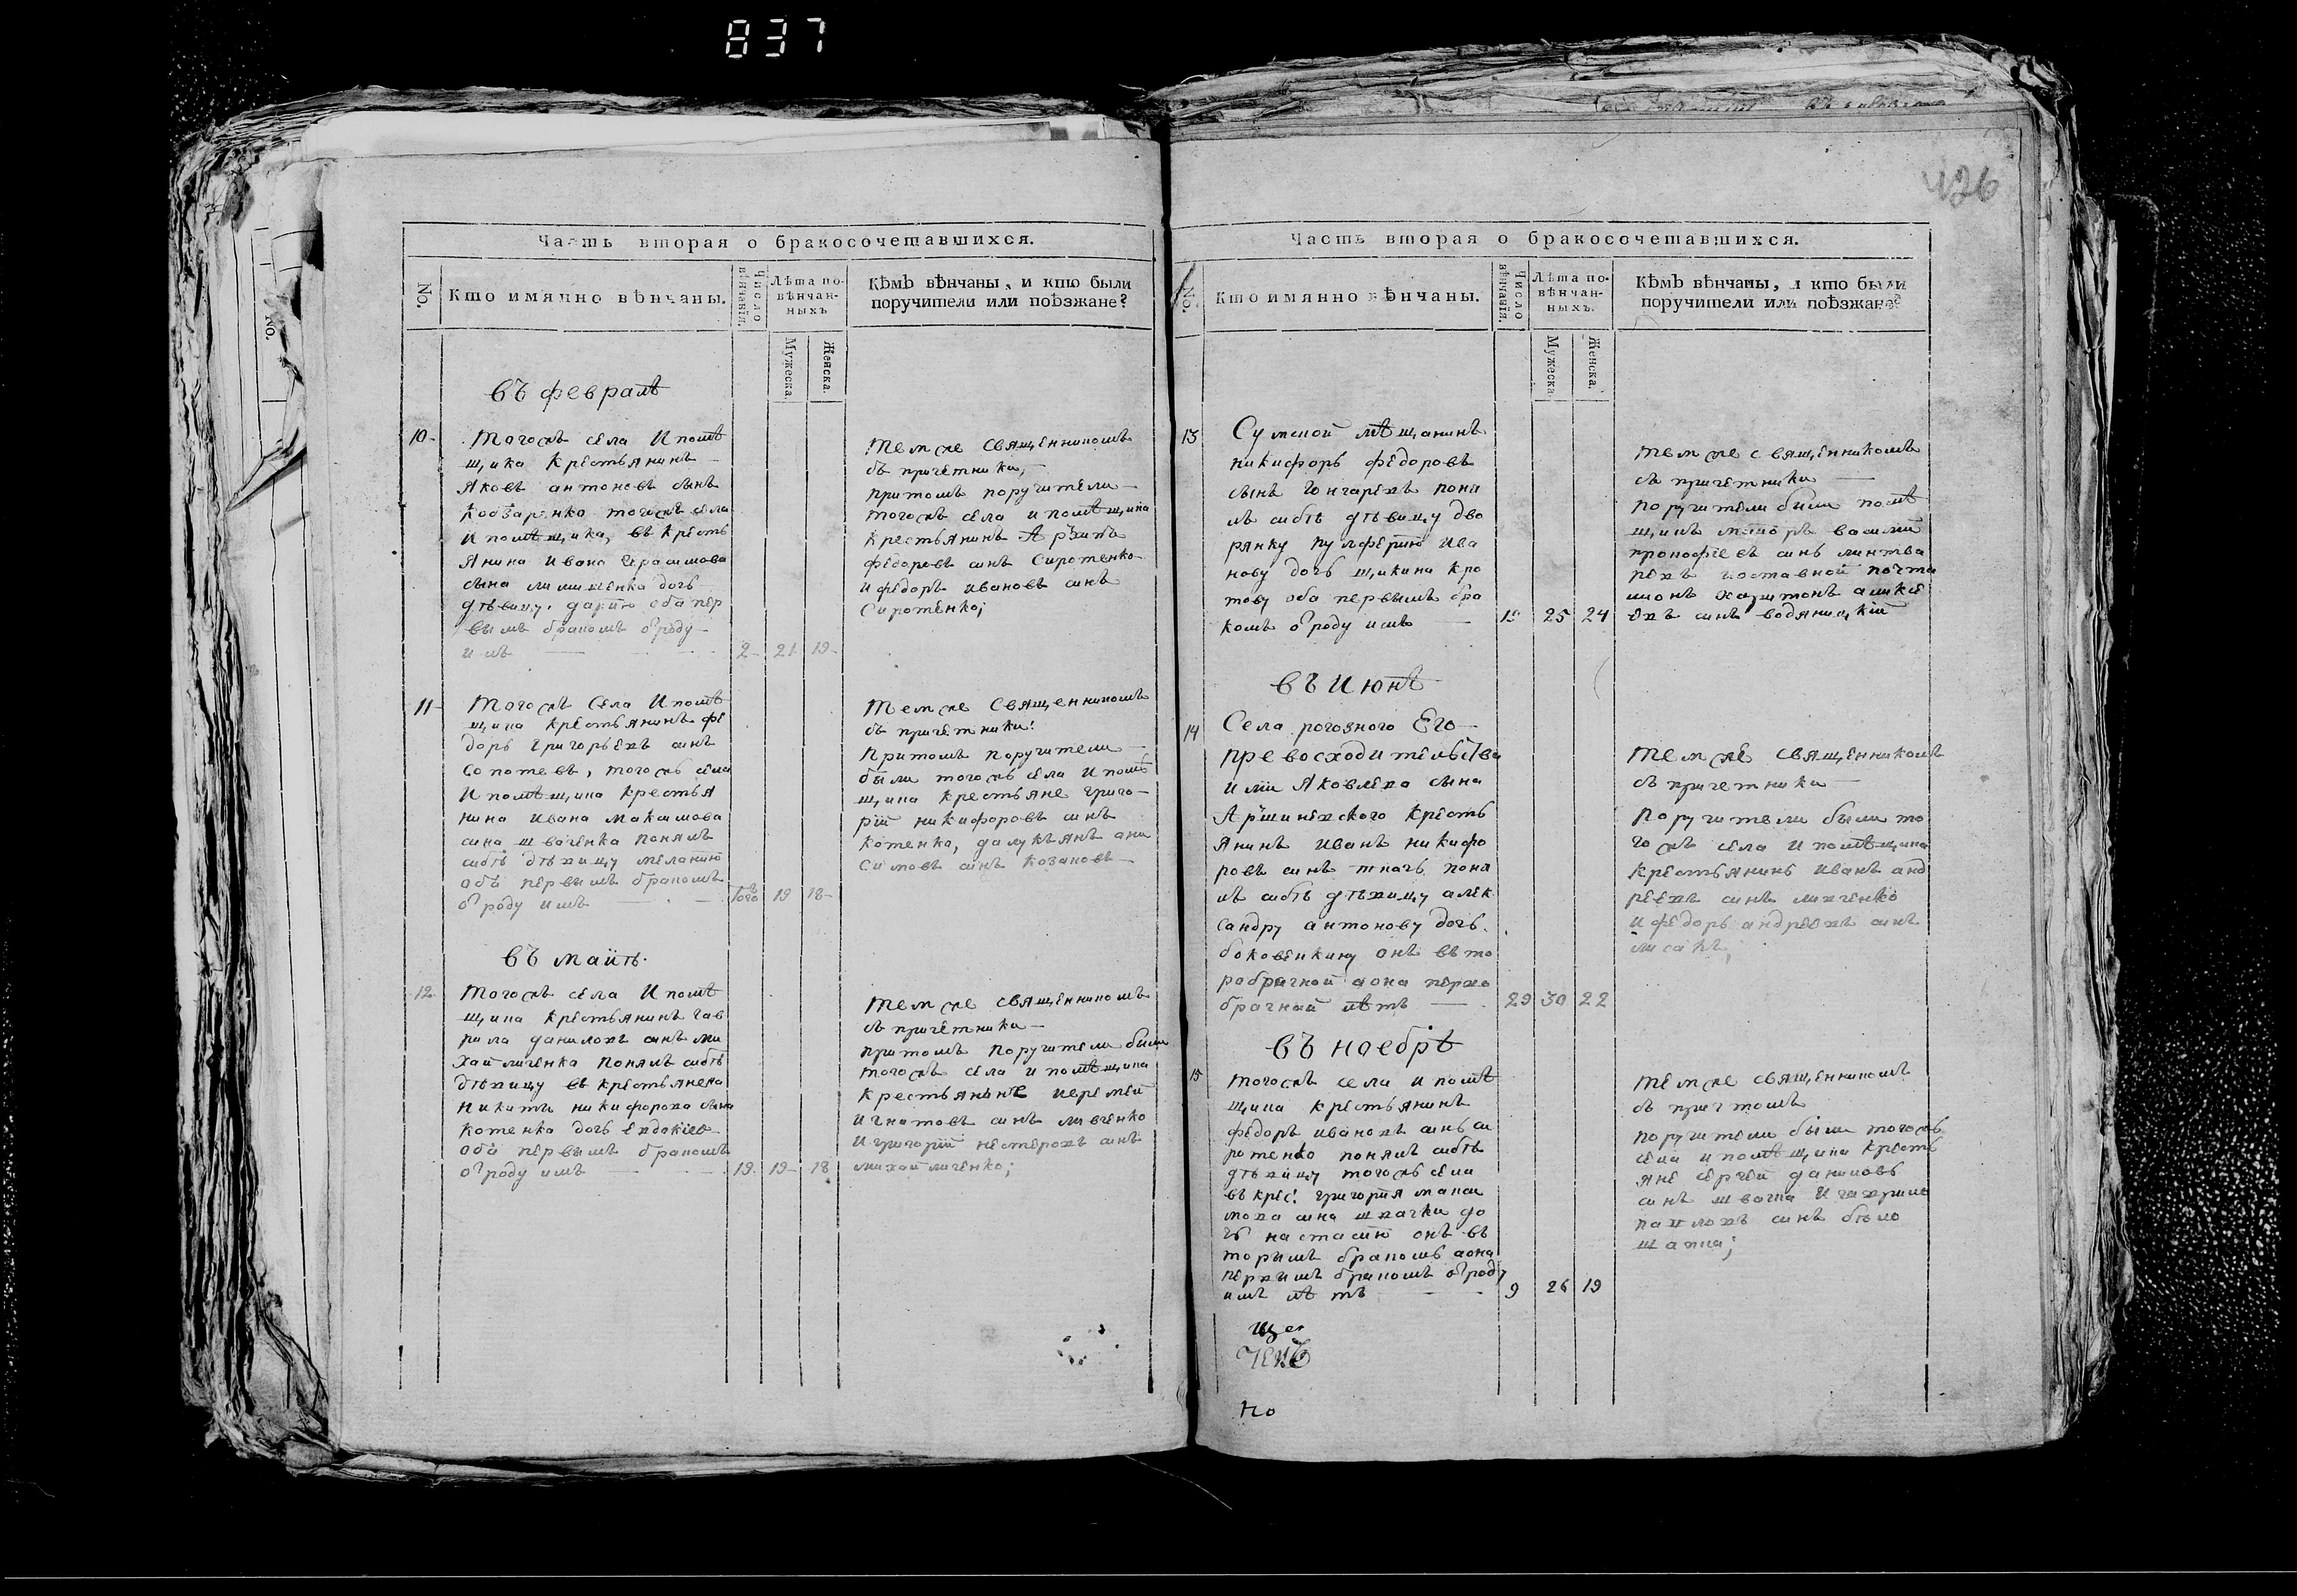 837
426
Часть вторая о бракосочетавшихся.
No.
Кто имянно вѣнчаны.
Число вѣнчанія.
Лѣта по-
вѣнчан-
ныхъ
Мужеска.
Женска.
Кѣмъ вѣнчаны, и кто были
поручители или поѣзжане?
въ февралѣ
10
Тогожъ села И помѣ
щика крестьянинъ
Яковъ антоновъ сынъ
тогожъ села
И помѣщика, въ кресть
янина Ивана Герасимова
сына дочь
дѣвицу дарию оба пер
вымъ бракомъ отроду
имъ
2 21 19
темже священникомъ
съ причетники,
притомъ поручители
тогожъ села и помѣщика
крестьянинъ
федоровъ синъ Сиротенко
и федоръ ивановъ синъ
Сиротенко;
11
Тогожъ Села И помѣ
щика крестьянинъ фе
доръ григорьевъ синъ
тогожъ села
И помѣщика крестья
нина Ивана Максимова
сина понялъ
сибѣ дѣвицу меланию
оба первымъ бракомъ
отроду имъ
того 19 18
Темже Священникомъ
съ причетники:
Притомъ поручители
были тогожъ села И помѣ
щика крестьяне григо
рій никифоровъ синъ
котенко, да лукьянъ ани
симовъ синъ
въ маиѣ.
12
Тогожъ села И помѣ
щика крестьянинъ гав
рила даниловъ синъ ми
хайличенка понялъ сибѣ
дѣвицу въ крестьянена
никиты никифорова сына
котенка дочь евдокию
оба первымъ бракомъ
отроду имъ
19 19 18
темже священникомъ
съ причетники
притомъ поручители были
тогожъ села и помѣщика
крестьянине иеремей
игнатовъ синъ ливченко
и григорій нестеровъ синъ
михайличенко;
Часть вторая о бракосочетавшихся.
No.
Кто имянно вѣнчаны.
Число вѣнчанія.
Лѣта по-
вѣнчан-
ныхъ.
Мужеска.
Женска.
Кѣмъ вѣнчаны, и кто были
поручители или поѣзжане?
13
Сумской мѣщанинъ
никифоръ федоровъ
сынъ гончаревъ поня
лъ сибѣ дѣвицу дво
рянку пулферию ива
нову дочь щикина кро
тову оба первымъ бра
комъ отроду имъ
25 24
темже священникомъ
съ причетники
поручители были помѣ
щикъ маіоръ василий
прокофіевъ синъ литва
ревъ почта
лионъ харитонъ аликсе
евъ синъ водяницкій
въ Июнѣ
14
Села рогозного Его
превосходительства
Яковлева сына
кресть
янинъ иванъ никифо
ровъ синъ ткачъ поня
лъ сибѣ дѣвицу алек
сандру антонову дочь
боковенкину онъ въто
робрачной аона перво
брачная лѣтъ
29 30 22
темже священникомъ
съ причетники
поручители были то
гожъ села и помѣщика
крестьянинъ иванъ анд
реевъ синъ
и федоръ андреевъ синъ
лисакъ;
въ ноебрѣ
15
тогожъ села и помѣ
щика крестьянинъ
федоръ ивановъ синъ си
ротенко понялъ сибѣ
дѣвицу тогожъ села
въ крес: григория макси
мова сина швачки до
чь настасию онъ въ
торымъ бракомъ аона
первимъ бракомъ отроду
имъ лѣтъ
9 26 19
темже священникомъ
съ причтомъ
поручители были тогожъ
села и помѣщика кресть
яне сергей даниловъ
синъ швачка и гаврило
павловъ синъ бѣло
шапка;
но